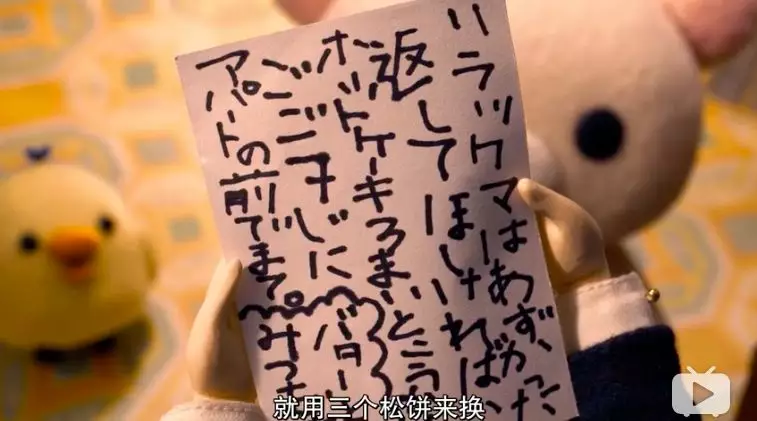 リラックマはあずかった
返してほしければ、
ホットケーキ3まいとこう
ごご じに
アパートの前でまて。
バター
みつ
就用三个松饼来换